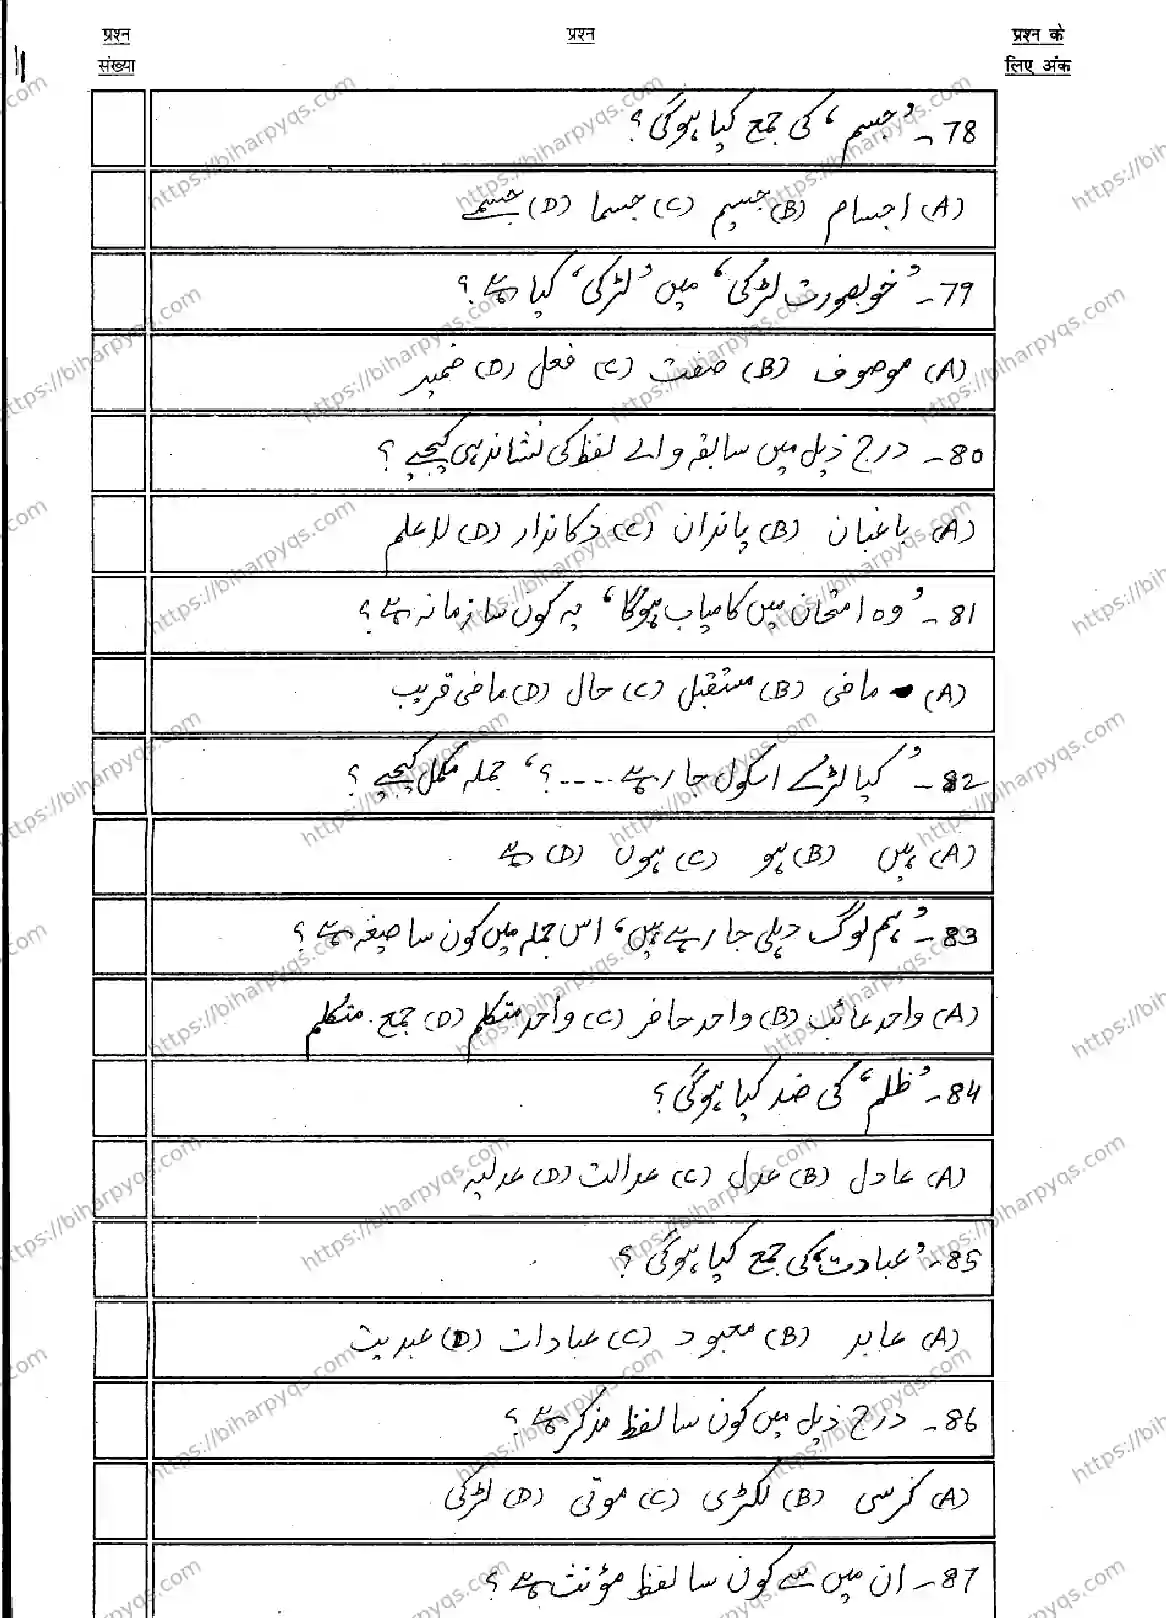 प्रश्न
संख्या
प्रश्न
प्रश्न के
लिए अंक
11
78۔ ’جسم‘ کی جمع کیا ہوگی؟
(A) اجسام (B) جسیم (C) جسما (D) جسمے
79۔ ’خوبصورت لڑکی‘ میں ’لڑکی‘ کیا ہے؟
(A) موصوف (B) صفت (C) فعل (D) ضمیر
80۔ درج ذیل میں سابقہ والے لفظ کی نشاندہی کیجیے؟
(A) باغبان (B) پاندان (C) دکاندار (D) لاعلم
81۔ ’وہ امتحان میں کامیاب ہوگا‘ یہ کون سا زمانہ ہے؟
(A) ماضی (B) مستقبل (C) حال (D) ماضی قریب
82۔ ’کیا لڑکے اسکول جا رہے ....؟‘ جملہ مکمل کیجیے؟
(A) ہیں (B) ہو (C) ہوں (D) ہے
83۔ ’ہم لوگ دہلی جا رہے ہیں‘ اس جملہ میں کون سا صیغہ ہے؟
(A) واحد غائب (B) واحد حاضر (C) واحد متکلم (D) جمع متکلم
84۔ ’ظلم‘ کی ضد کیا ہوگی؟
(A) عادل (B) عدل (C) عدالت (D) عدلیہ
85۔ ’عبادت‘ کی جمع کیا ہوگی؟
(A) عابد (B) معبود (C) عبادات (D) عبدیت
86۔ درج ذیل میں کون سا لفظ مذکر ہے؟
(A) کرسی (B) لکڑی (C) موتی (D) لڑکی
87۔ ان میں سے کون سا لفظ مؤنث ہے؟
https://biharpyqs.com